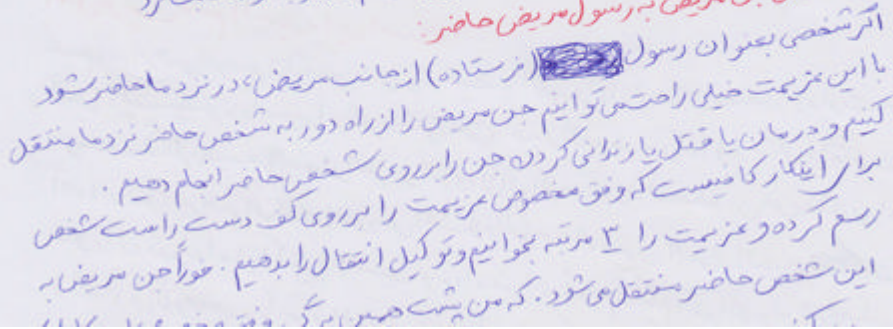 مریض به رسول مریض حاضر:
اگر شخصی بعنوان رسول (فرستاده) از جانب مریض، در نزد ما حاضر شود
با این عزیمت خیلی راحت می توانیم جن مریض را از راه دور به شخص حاضر نزد ما منتقل
کنیم و درمان یا قتل یا زندانی کردن جن را بر روی شخص حاضر انجام دهیم.
برای اینکار کافیست که وفق مخصوص عزیمت را بر روی کف دست راست شخص
رسم کرده و عزیمت را ۳ مرتبه بخوانیم و توکیل انتقال را بدهیم. فوراً جن مریض به
این شخص حاضر منتقل می شود. که من پشت همین برگه وفق و